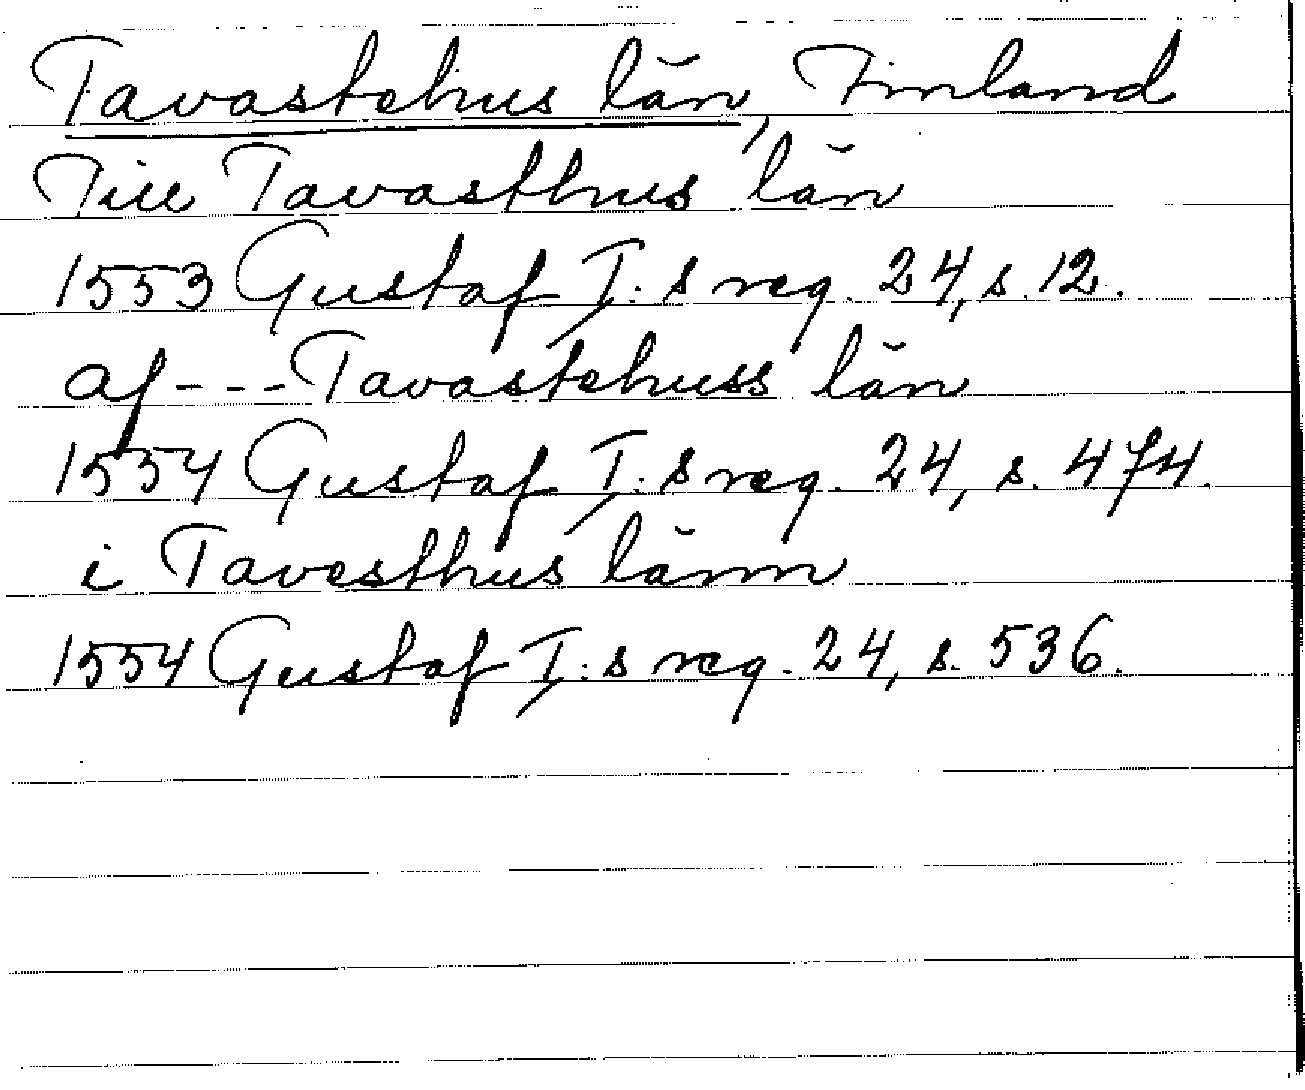 Tavastehus län, Finland
Till Tavasthus län
1553 Gustaf I:s reg. 24, s. 12.
af --- Tavastehuss län
1554 Gustaf I:s reg. 24, s. 474.
i Tavesthus länn
1554 Gustaf I:s reg. 24, s. 536.